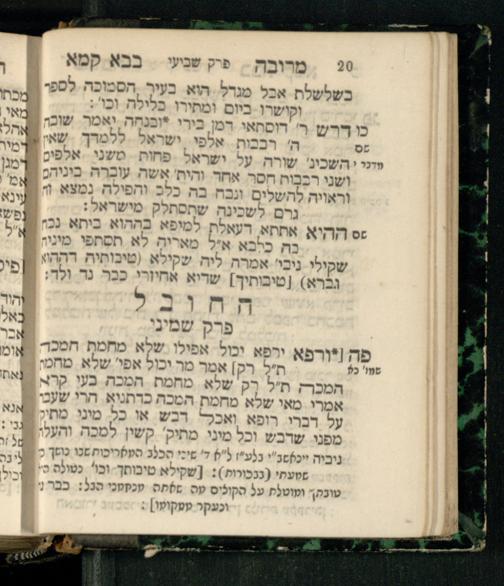 20 מרובה פרק שביעי בבא קמא
בשלשלת אבל מגדל הוא בעיר הסמוכה לספר
וקושרו ביום ומתירו בלילה וכו':
כו דרש ר' דוסתאי דמן בירי *ובנחה יאמר שובה
שם ה' רבבות אלפי ישראל ללמדך שאין
מדבר י השכינ' שורה על ישראל פחות משני אלפים
ושני רבבות חסר אחד והית' אשה עוברה ביניהם
וראויה להשלים ונבח בה כלב והפילה נמצא זה
גרם לשכינה שתסתלק מישראל:
שם ההיא אתתא דעאלת למיפא בההוא ביתא נבח
בה כלבא א"ל מאריה לא תסתפי מיניה
שקילי ניבי' אמרה ליה שקילא (טיבותיה דההוא
גברא) [טיבותיך] שדיא אחיזרי כבר נד ולד:
החובל
פרק שמיני
פה [*ורפא ירפא יכול אפילו שלא מחמת המכה
שמו' כא ת"ל רק] אמר מר יכול אפי' שלא מחמת
המכה ת"ל רק שלא מחמת המכה בעי קרא
אמרי מאי שלא מחמת המכה כדתניא הרי שעבר
על דברי רופא ואכל דבש או כל מיני מתיק'
מפני שדבש וכל מיני מתיק' קשין למכה והעלה
ניביה
שמעתי (בבכורות): [שקילא טיבותך וכו'
טובתך ומוטלת על הקוצים
ונעקר ממקומו]: